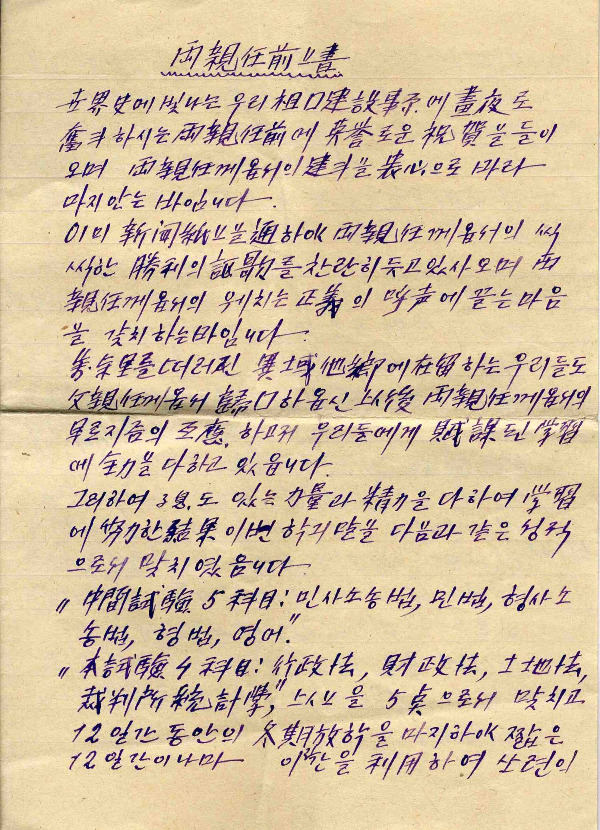 両親任前上書
世界史에 빛나는 우리 祖口建設事業에 晝夜로
奮斗하시는 両親任前에 英誉로운 祝賀을 들이
오며 両親任께옵서의 建斗을 衷心으로 바라
마지안는 바임니다.
이미 新闻紙上을 通하야 両親任께옵서의 씩
씩한 勝利의 記를 찬란히 듯고 있사오며 両
親任께옵서의 웨치는 正義의 呼声에 끌는 마음
을 갖치하는바임니다
를 떠러진 異域他鄕에 在留하는 우리들도
父親任께옵서 歸口하옵신 上後 両親任께옵서의
부르지즘의 호應하고저 우리들에게 賦課된 学習
에 全力을 다하고 있읍니다.
그리하여 3兄도 있는 力量과 精力을 다하여 学習
에 努力한 結果 이번 학긔말을 다음과 같은 성적
으로서 맞치였음니다
"中間試驗 5科目: 민사소송법, 민법, 형사소
송법, 형법, 영어."
"本試驗 4科目: 行政法, 財政法, 土地法,
裁判所統計学," 上을 5点으로서 맞치고
12일간 동안의 冬期放학을 마지하야 짧은
12일간이나마 이간을 利用하여 쏘련의